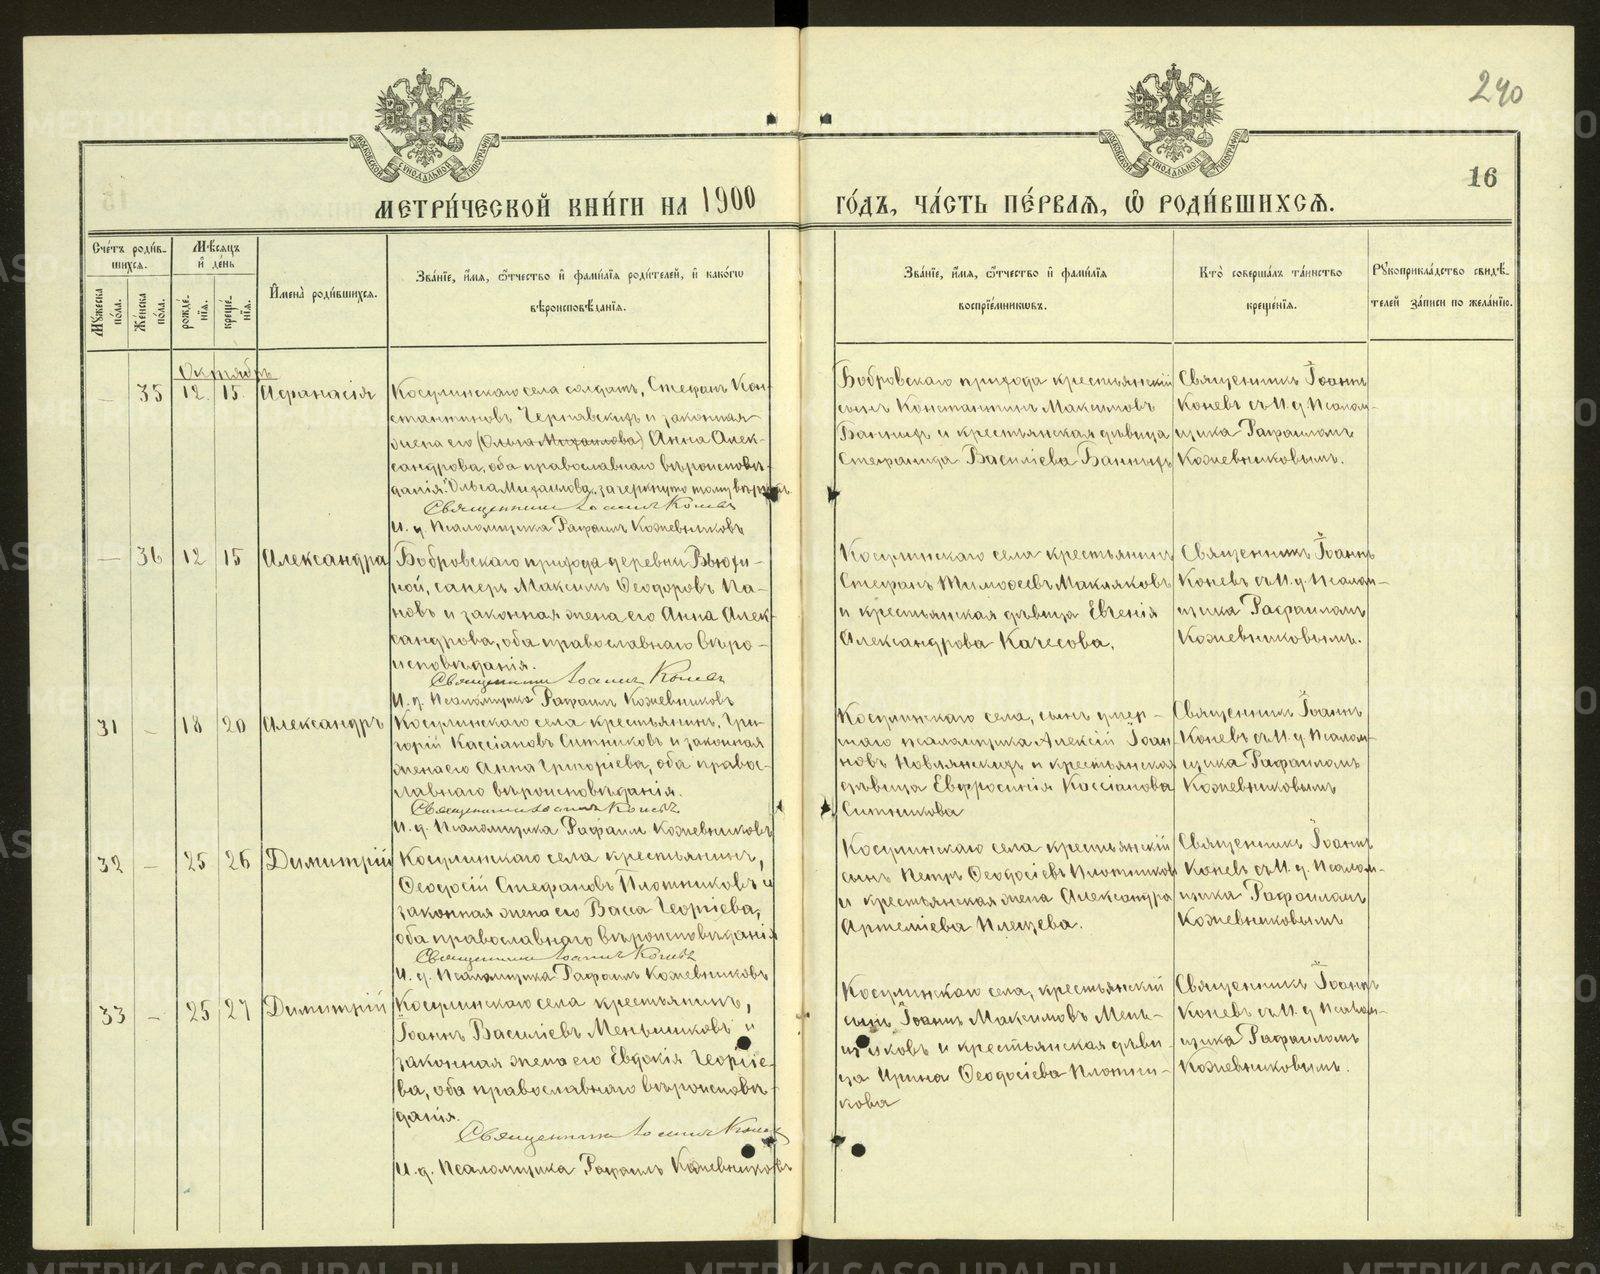 240
16
МЕТРИ́ЧЕСКОЙ КНИ́ГИ НА 1900
ГО́ДЪ, ЧА́СТЬ ПЕ́РВАѦ, Ѡ҆ РОДИ́ВШИХСѦ.
Сче́тъ роди́в-
шихсѧ.
Мꙋ́жеска по́ла.
Же́нска по́ла.
Мѣ́сѧцъ
и҆ де́нь
рожде́-
нїѧ.
креще́-
нїѧ.
И҆мена̀ роди́вшихсѧ.
Зва́нїе, и҆́мѧ, ѻ҆́тчество и҆ фами́лїѧ роди́телей, и҆ како́гѡ
вѣроисповѣ́данїѧ.
Зва́нїе, и҆́мѧ, ѻ҆́тчество и҆ фами́лїѧ
воспрїе́мникѡвъ.
Кто̀ соверша́лъ та́инство
креще́нїѧ.
Рꙋкоприкла́дство свидѣ́-
телей за́писи по жела́нїю.
Октябрь
— 35 12 15 Афанасія
Косулинскаго села солдатъ, Стефанъ Кон-
стантиновъ Чернявскихъ и законная
жена его (Ольга Михаилова) Анна Алек-
сандрова, оба православнаго вѣроисповѣ-
данія. "Ольга Михаилова" зачеркнуто тому вѣрить.
Священникъ Іоаннъ Коневъ
И. д. Псаломщика Рафаилъ Кожевниковъ
Бобровскаго прихода крестьянскій
сынъ Константинъ Максимовъ
Банныхъ и крестьянская дѣвица
Стефанида Василіева Банныхъ
Священникъ Іоаннъ
Коневъ съ И. д. Псалом-
щика Рафаиломъ
Кожевниковымъ.
— 36 12 15 Александра
Бобровскаго прихода деревни Вьюхи-
ной, саперъ Максимъ Ѳеодоровъ Па-
новъ и законная жена его Анна Алек-
сандрова, оба православнаго вѣро-
исповѣданія.
Священникъ Іоаннъ Коневъ
И. д. Псаломщика Рафаилъ Кожевниковъ
Косулинскаго села крестьянинъ
Стефанъ Тимоѳеевъ Макляковъ
и крестьянская дѣвица Евгенія
Александрова Качесова.
Священникъ Іоаннъ
Коневъ съ И. д. Псалом-
щика Рафаиломъ
Кожевниковымъ.
31 — 18 20 Александръ
Косулинскаго села крестьянинъ, Гри-
горій Кассіановъ Ситниковъ и законная
жена его Анна Григоріева, оба правос-
лавнаго вѣроисповѣданія.
Священникъ Іоаннъ Коневъ
И. д. Псаломщика Рафаилъ Кожевниковъ
Косулинскаго села, сынъ умер-
шаго псаломщика Алексій Іоан-
новъ и крестьянская
дѣвица Евфросинія Кассіанова
Ситникова
Священникъ Іоаннъ
Коневъ съ И. д. Псалом-
щика Рафаиломъ
Кожевниковымъ
32 — 25 26 Димитрій
Косулинскаго села крестьянинъ,
Ѳеодосій Стефановъ Плотниковъ и
законная жена его Васса Георгіева,
оба православнаго вѣроисповѣданія
Священникъ Іоаннъ Коневъ
И. д. Псаломщика Рафаилъ Кожевниковъ
Косулинскаго села крестьянскій
сынъ Петръ Ѳеодосіевъ Плотниковъ
и крестьянская жена Александра
Артеміева Плещева.
Священникъ Іоаннъ
Коневъ съ И. д. Псалом-
щика Рафаиломъ
Кожевниковымъ
33 — 25 27 Димитрій
Косулинскаго села крестьянинъ,
Іоаннъ Василіевъ Меньшиковъ и
законная жена его Евдокія Георгіе-
ва, оба православнаго вѣроисповѣ-
данія.
Священникъ Іоаннъ Коневъ
И. д. Псаломщика Рафаилъ Кожевниковъ
Косулинскаго села, крестьянскій
сынъ Іоаннъ Максимовъ Мень-
шиковъ и крестьянская дѣви-
ца Ирина Ѳеодосіева Плотни-
кова
Священникъ Іоаннъ
Коневъ съ И. д. Псалом-
щика Рафаиломъ
Кожевниковымъ.